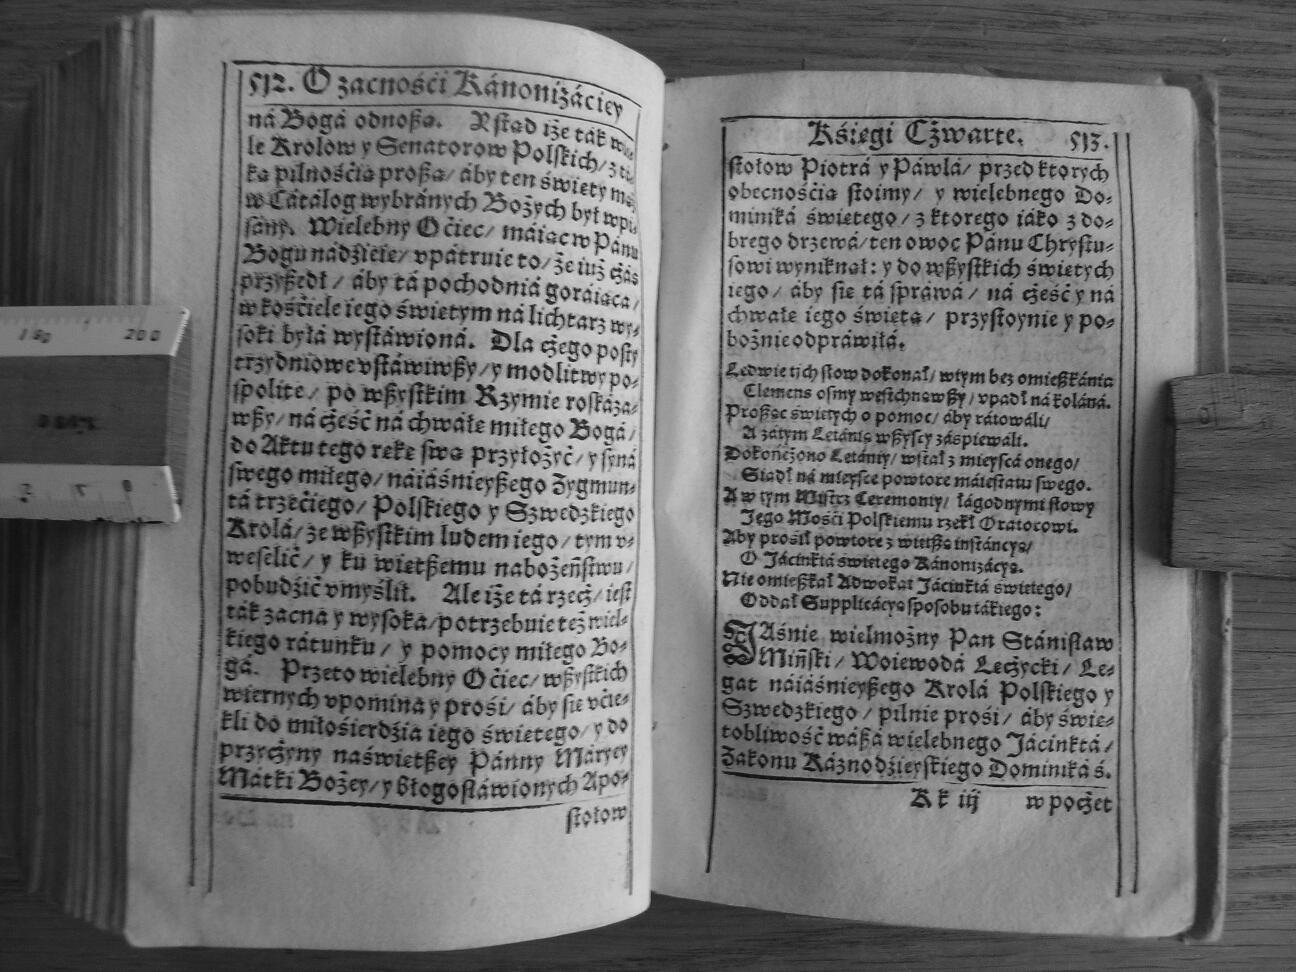 512. O zacnośći Kánonizáciey
ná Bogá odnoßa. A stąd iże ták wie-
le Krolow y Senatorow Polskich/ z tá-
ką pilnośćią proßą/ áby ten święty mąż
w Cátálog wybránych Bożych był wpi-
sány. Wielebny Oćiec/ máiąc w Pánu
Bogu nádźieię/ vpátruie to/ że iuż cżás
przyßedł/ áby tá pochodniá goráiąca/
w kośćiele iego świętym ná lichtarz wy-
soki byłá wystáwioná. Dla cżego posty
trzydniowe vstáwiwßy/ y modlitwy po-
spolite/ po wßystkim Rzymie roskáza-
wßy/ ná cżeść ná chwałę miłego Bogá/
do Aktu tego rękę swą przyłożyć/ y syná
swego miłego/ náiáśnieyßego Zygmun-
tá trzećiego/ Polskiego y Szwedzkiego
Krolá/ że wßystkim ludem iego/ tym v-
weselić/ y ku więtßemu nabożeństwu/
pobudźić vmyślił. Ale iże tá rzecż/ iest
ták zacna y wysoka/ potrzebuie też wiel-
kiego rátunku/ y pomocy miłego Bo-
gá. Przeto wielebny Oćiec/ wßystkich
wiernych vpomina y prośi/ áby się vćie-
kli do miłośierdźia iego świętego/ y do
przycżyny naświętßey Pánny Máryey
Mátki Bożey/ y błogosłáwionych Apo-
stołow
Kśięgi Cżwarte. 513.
stołow Piotrá y Páwłá/ przed ktorych
obecnośćią stoimy/ y wielebnego Do-
miniká świętego/ z ktorego iáko z do-
brego drzewá/ ten owoc Pánu Chrystu-
sowi wyniknął: y do wßystkich świętych
iego/ áby się tá spráwá/ ná cżeść y ná
chwałę iego świętą/ przystoynie y po-
bożnie odpráwiłá.
Ledwie tich słow dokonał/ wtym bez omießkánia
Clemens osmy westchnąwßy/ vpadł ná koláná.
Proßąc świętych o pomoc/ áby rátowáli/
A zátym Letánią wßyscy záspiewáli.
Dokońcżono Letániy/ wstał z mieyscá onego/
Siadł ná mieysce powtore máiestatu swego.
A w tym Mystrz Ceremoniy/ łágodnymi słowy
Jego Mośći Polskiemu rzekł Oratorowi.
Aby prosił powtore z większą instáncyą/
O Jácinktá świętego Kánonizácyą.
Nie omießkał Adwokat Jácinktá świętego/
Oddał Supplicácyą sposobu tákiego:
JAśnie wielmożny Pan Stánisław
Miński/ Woiewodá Lęcżycki/ Le-
gat náiáśnieyßego Krolá Polskiego y
Szwedzkiego/ pilnie prośi/ áby świę-
tobliwość wáßá wielebnego Jácinktá/
Zakonu Káznodźieyskiego Dominiká ś.
Kk iij w pocżet